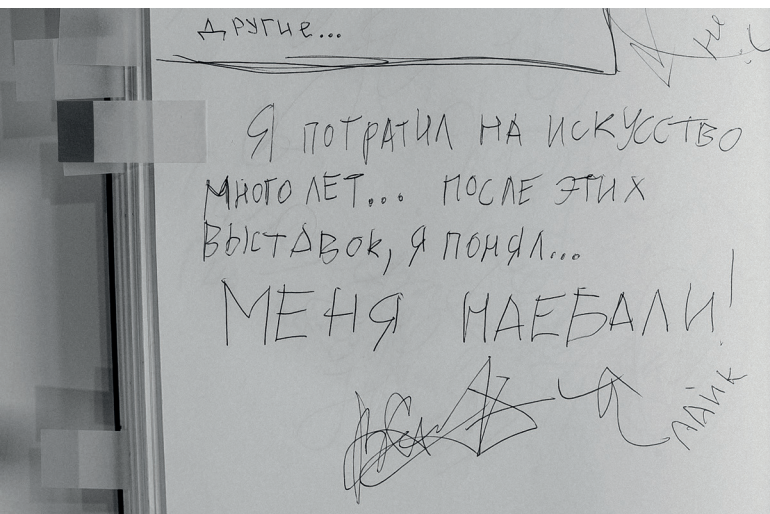 другие...
не
Я потратил на искусство
много лет... после этих
выставок, я понял...
МЕНЯ НАЕБАЛИ!
лайк